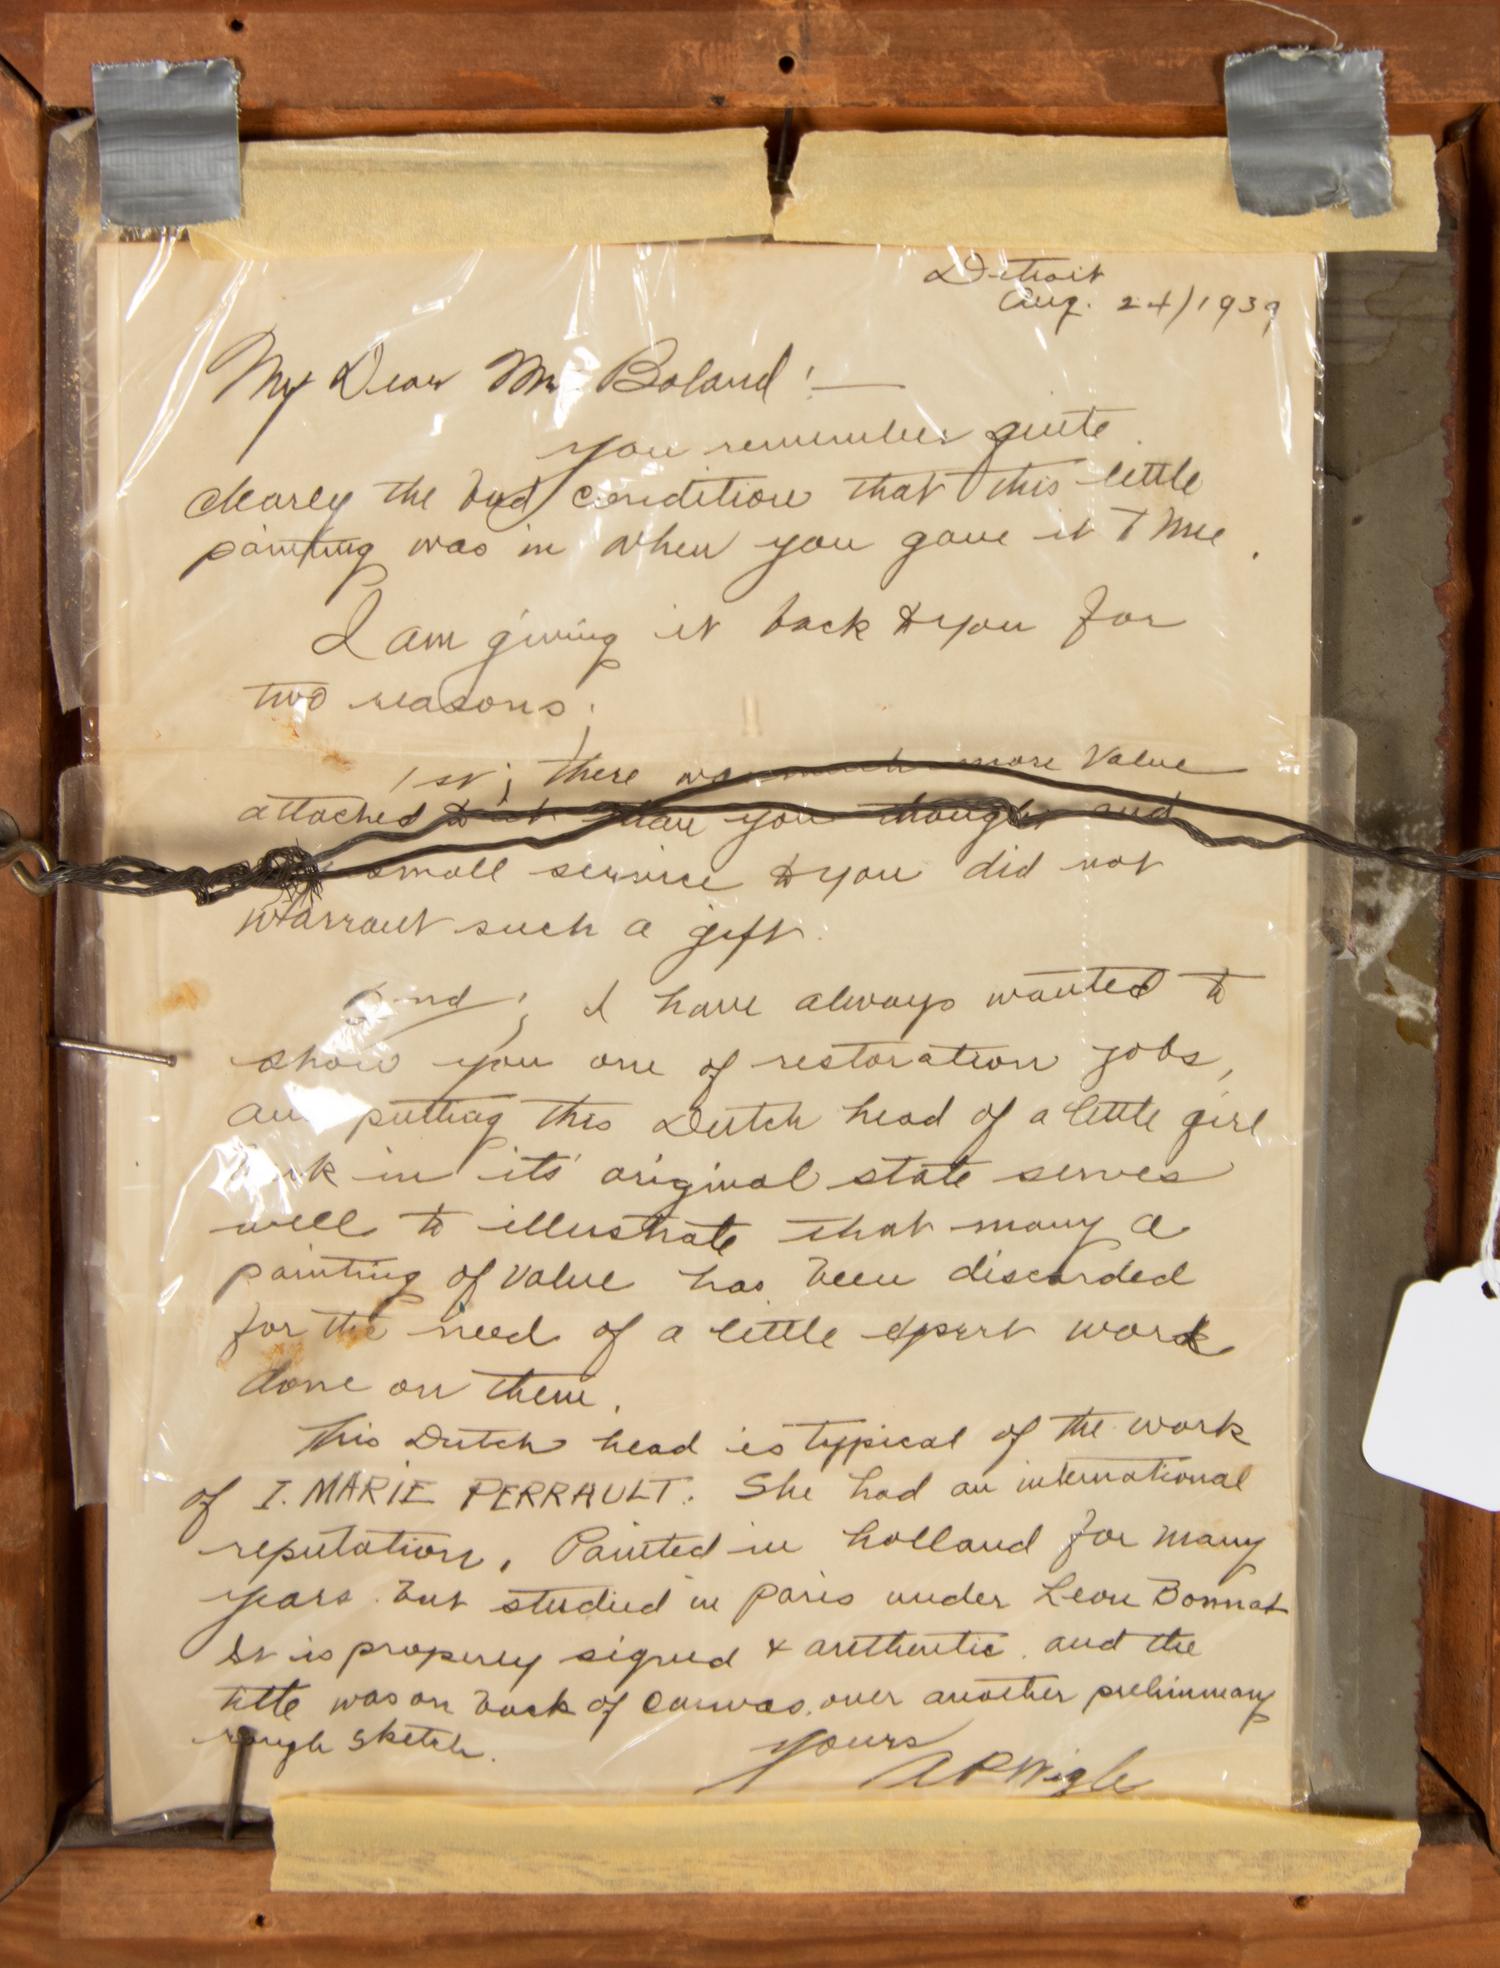 Detroit
Aug. 24/1939
My Dear Mr Boland:—
You remember quite
clearly the bad condition that this little
painting was in when you gave it T me.
I am giving it back to you for
two reasons;
1st; there was much more value
attached to it than you thought and
small service to you did not
warrant such a gift.
2nd; I have always wanted to
show you one of restoration jobs,
and putting this Dutch head of a little girl
back in its' original state serves
well to illustrate that many a
painting of value has been discarded
for the need of a little expert work
done on them.
This Dutch head is typical of the work
of I. MARIE PERRAULT. She had an international
reputation. Painted in holland for many
years. but studied in paris under Leon Bonnat
It is properly signed & authentic. and the
title was on back of canvas. over another preliminary
rough sketch.
Yours
A P Wigle